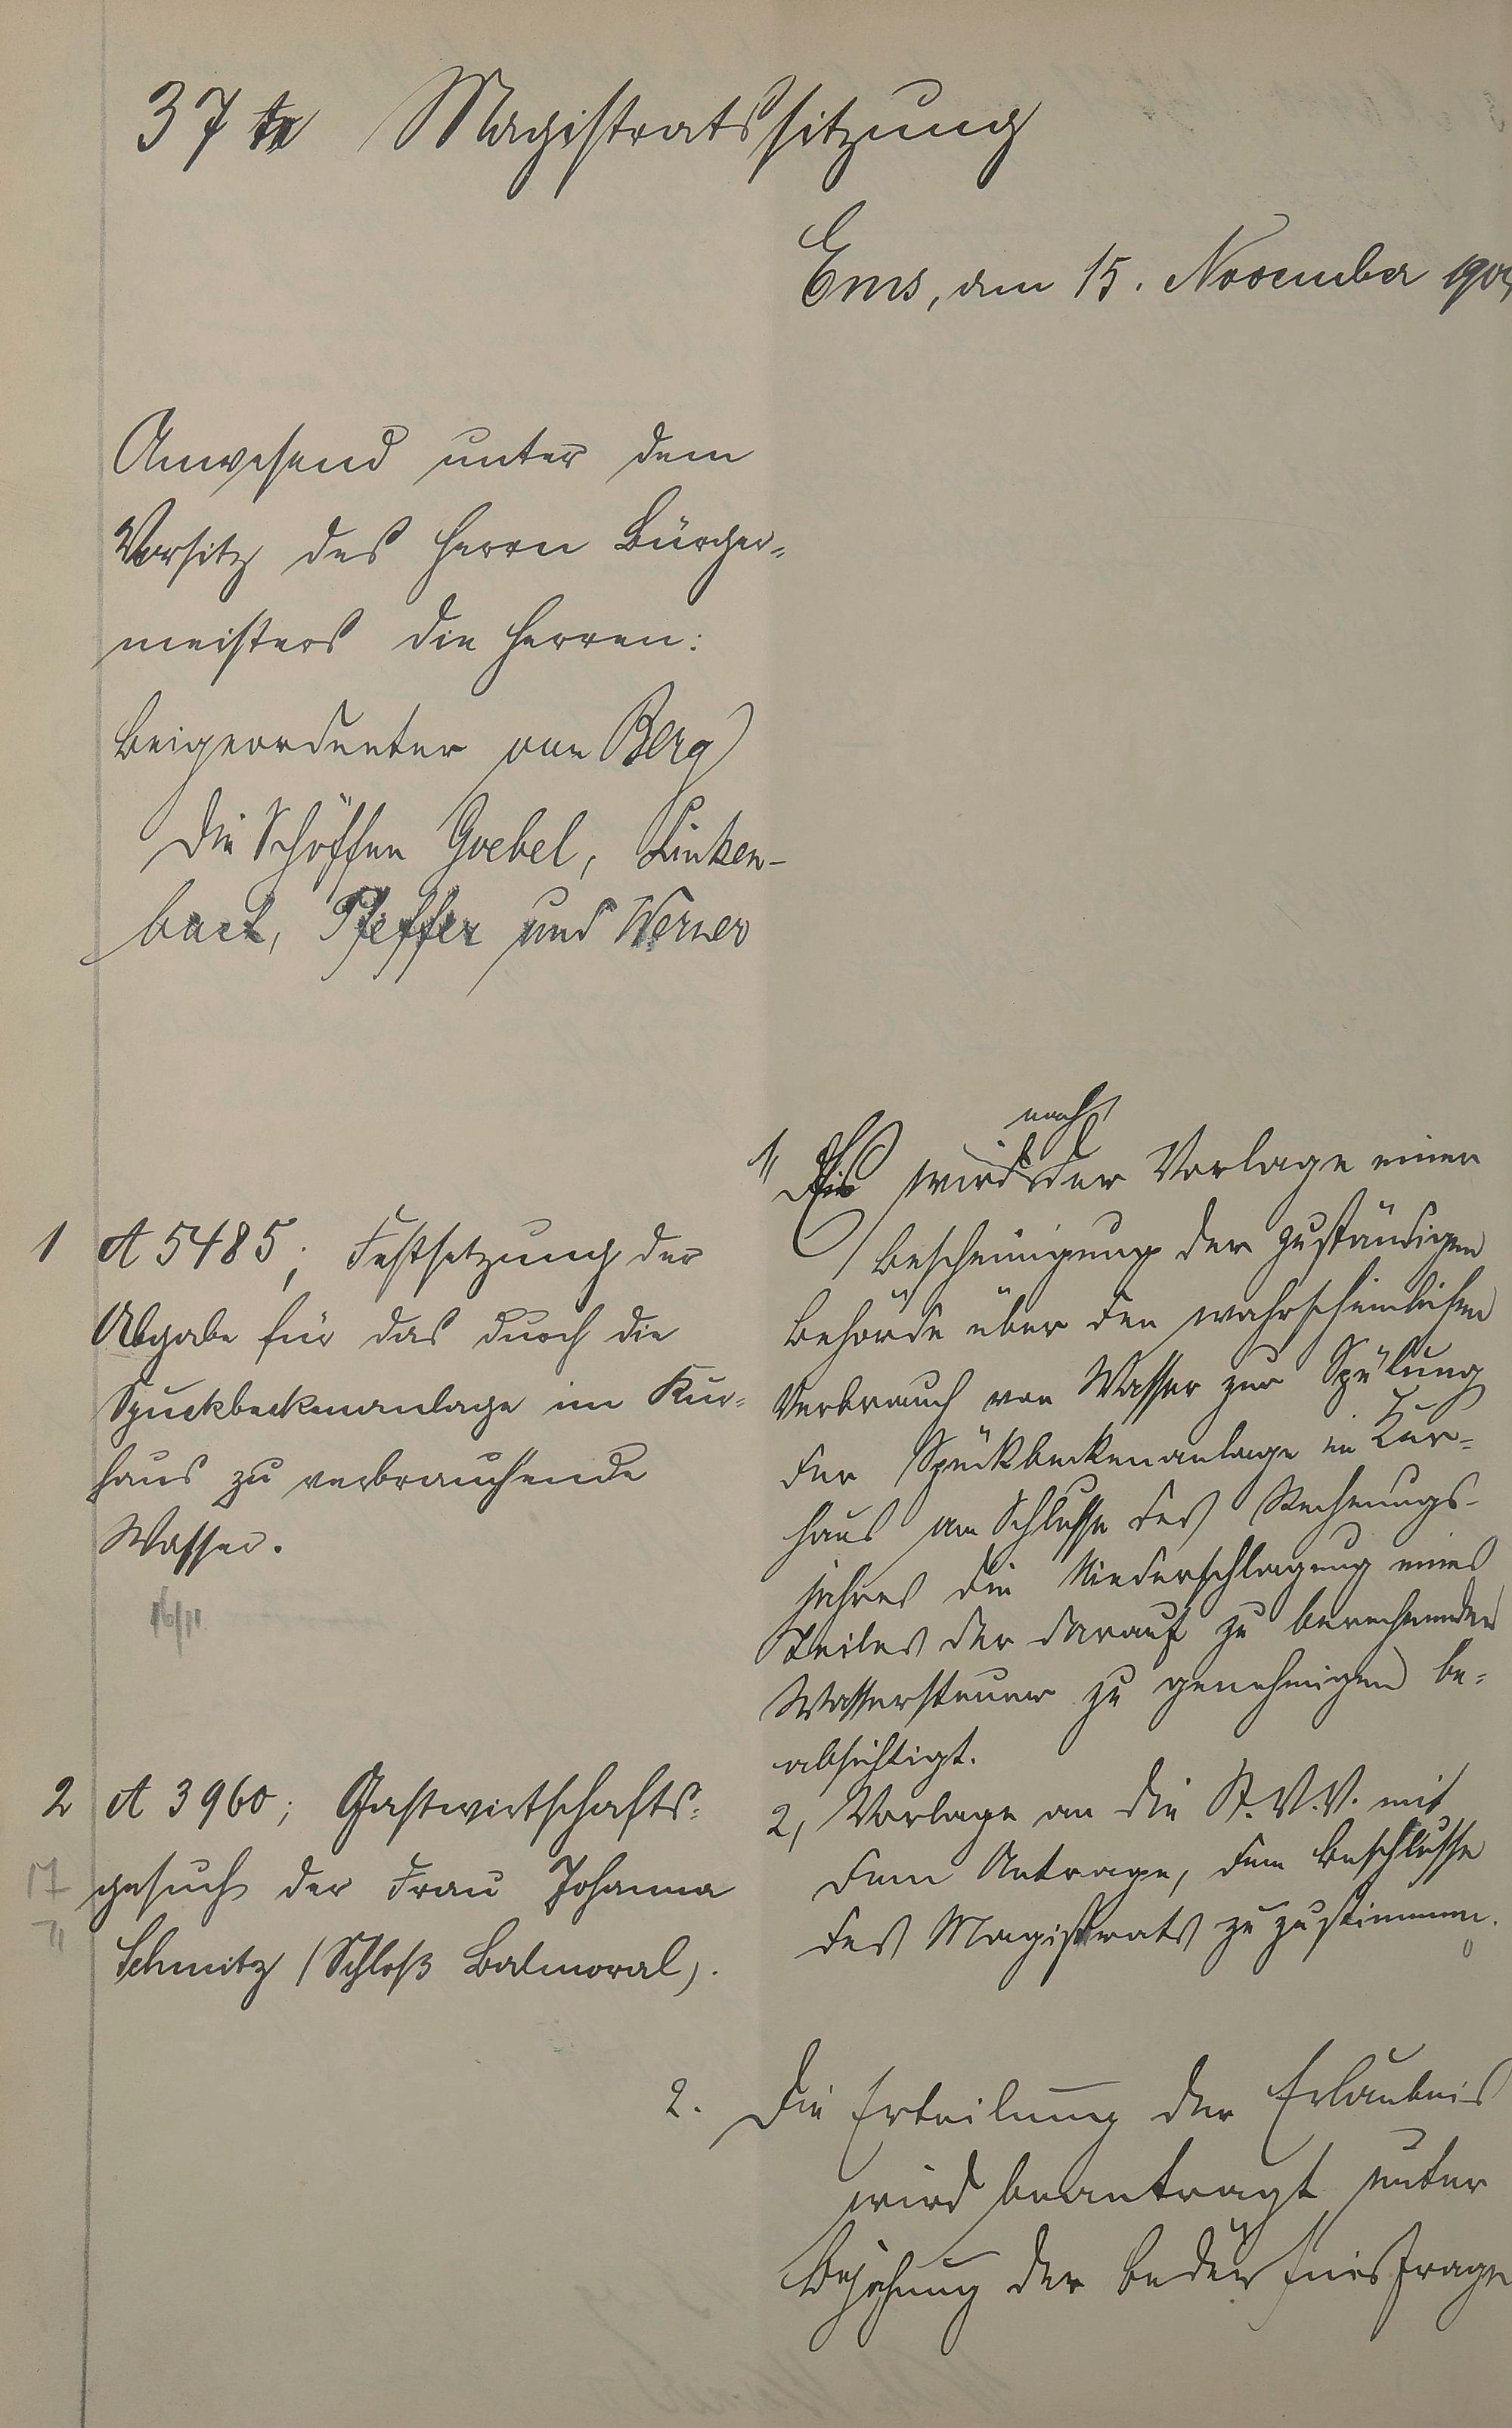 37te Magistratssitzung
Ems, den 15. November
Anwesend unter dem
Vorsitz des Herrn Bürger=
meisters die Herren:
Beigeordneter von Berg
die Schöffen Goebel, Linken-
bach, Pfeffer und Werner
1 A 5485; Festsetzung der
Abgabe für das durch die
Spuckbeckenanlage im Kur=
haus zu verbrauchende
Wasser.
16/11
1, Es wird nach der Vorlage einer
Bescheinigung der zuständigen
Behörde über den wahrscheinlichen
Verbrauch von Wasser zur Spülung
der Spuckbeckenanlage im Kur=
haus am Schlusse des Rechnungs-
jahres die Niederschlagung eines
Teiles der darauf zu berechnenden
Wassersteuer zu genehmigen be=
absichtigt.
2, Vorlage an die St.V.V. mit
dem Antrage, dem Beschlusse
des Magistrats zuzustimmen.
2 A 3960; Gastwirtschafts=
gesuch der Frau Johanna
Schmitz (Schloß Balmoral).
17
11
2. Die Erteilung der Erlaubnis
wird beantragt unter
Bejahung der Bedürfnisfrage